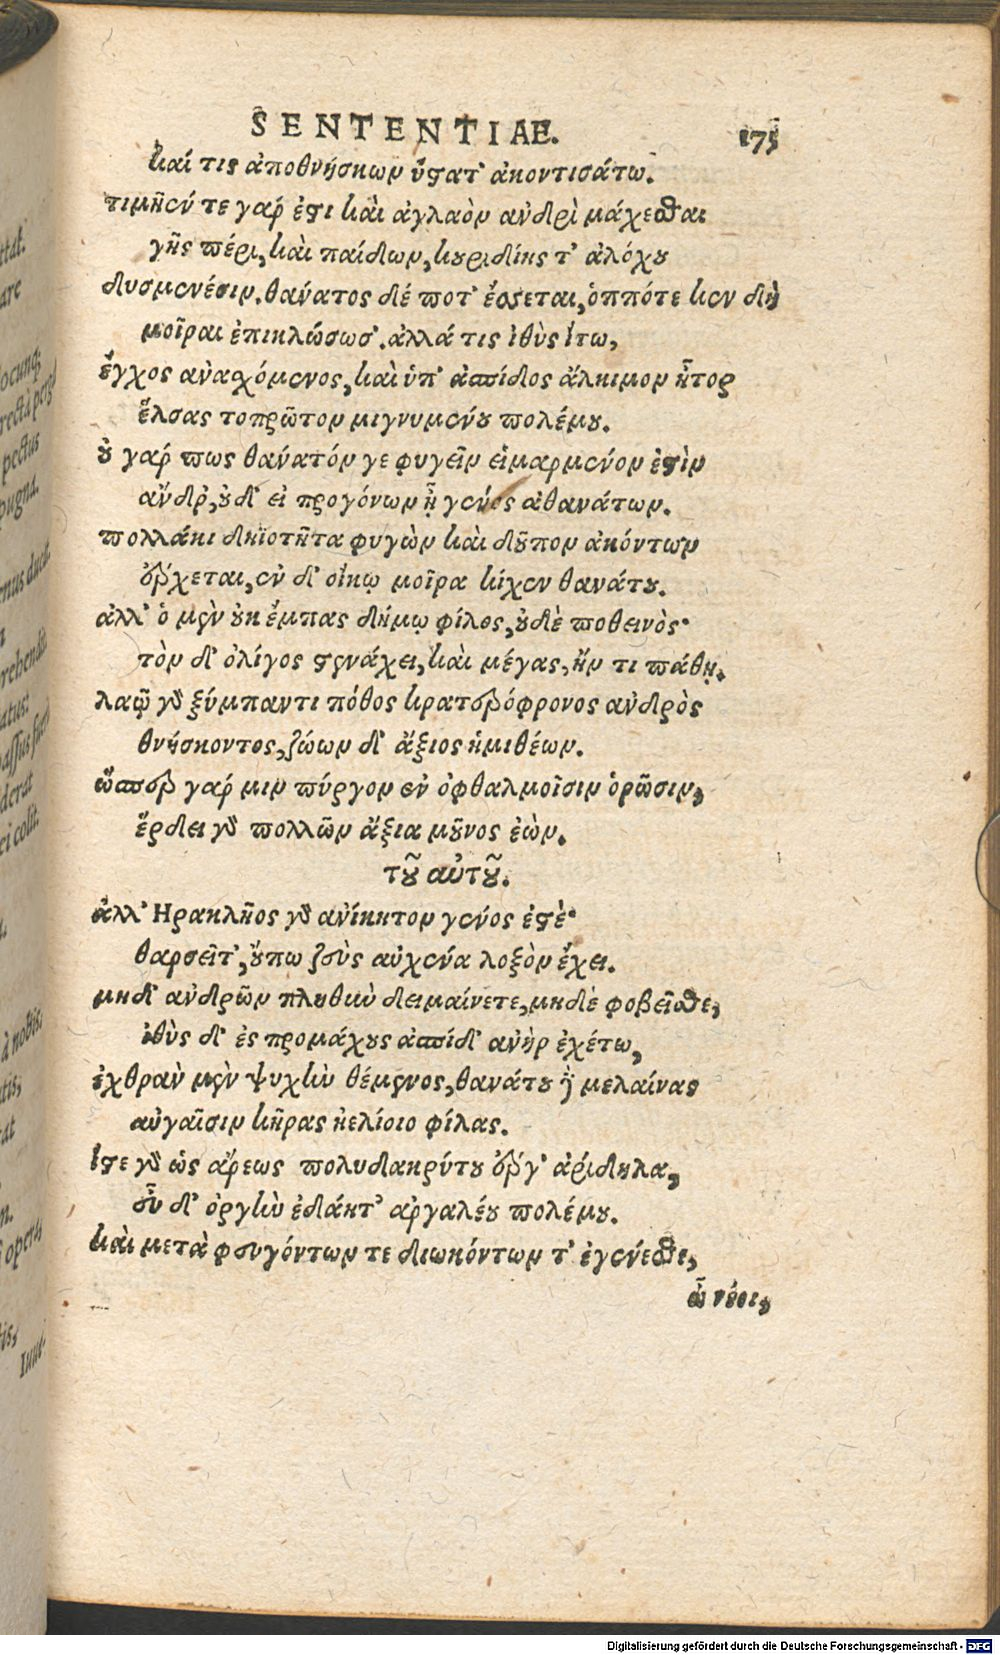 SENTENTIAE. 175
καί τις ἀποθνήσκων ὕστατ' ἀκοντισάτω.
τιμῆέν τε γάρ ἐστι καὶ ἀγλαὸν ἀνδρὶ μάχεσθαι
γῆς πέρι, καὶ παίδων, κουριδίης τ' ἀλόχου
δυσμενέσιν. θάνατος δέ ποτ' ἔσσεται, ὁππότε κεν δὴ
μοῖραι ἐπικλώσωσ'. ἀλλά τις ἰθὺς ἴτω,
ἔγχος ἀνασχόμενος, καὶ ὑπ' ἀσπίδος ἄλκιμον ἦτορ
ἔλσας τοπρῶτον μιγνυμένου πολέμου.
οὐ γάρ πως θάνατόν γε φυγεῖν εἱμαρμένον ἐστὶν
ἄνδρ', οὐδ' εἰ προγόνων ᾖ γένος ἀθανάτων.
πολλάκι δηϊοτῆτα φυγὼν καὶ δοῦπον ἀκόντων
ἔρχεται, ἐν δ' οἴκῳ μοῖρα κίχεν θανάτου.
ἀλλ' ὁ μὲν οὐκ ἔμπας δήμῳ φίλος, οὐδὲ ποθεινὸς·
τὸν δ' ὀλίγος στενάχει, καὶ μέγας, ἤν τι πάθῃ.
λαῷ γὰρ ξύμπαντι πόθος κρατερόφρονος ἀνδρὸς
θνήσκοντος, ζώων δ' ἄξιος ἡμιθέων.
ὥσπερ γάρ μιν πύργον ἐν ὀφθαλμοῖσιν ὁρῶσιν,
ἔρδει γὰρ πολλῶν ἄξια μοῦνος ἐών.
τοῦ αὐτοῦ.
ἀλλ' Ἡρακλῆος γὰρ ἀνίκητον γένος ἐστὲ·
θαρσεῖτ', οὔπω ζεὺς αὐχένα λοξὸν ἔχει.
μηδ' ἀνδρῶν πληθὺν δειμαίνετε, μηδὲ φοβεῖσθε,
ἰθὺς δ' ἐς προμάχους ἀσπίδ' ἀνὴρ ἐχέτω,
ἐχθρὰν μὲν ψυχὴν θέμενος, θανάτου δὲ μελαίνας
αὐγαῖσιν κῆρας ἠελίοιο φίλας.
ἴστε γὰρ ὡς ἄρεως πολυδακρύτου ἔργ' ἀρίδηλα,
εὖ δ' ὀργὴν ἐδάητ' ἀργαλέου πολέμου.
καὶ μετὰ φευγόντων τε διωκόντων τ' ἐγένεσθε,
ὦ νέοι,
Digitalisierung gefördert durch die Deutsche Forschungsgemeinschaft - DFG